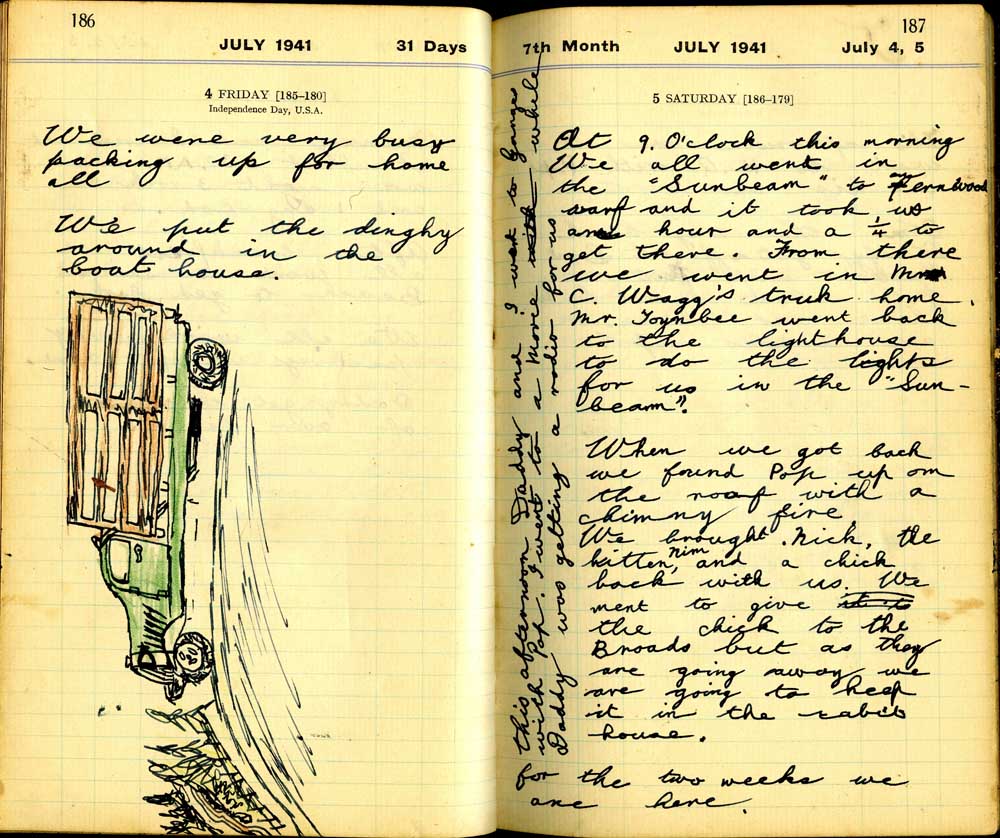 186
JULY 1941 31 Days
4 FRIDAY [185–180]
Independence Day, U.S.A.
We were very busy
packing up for home
all
We put the dinghy
around in the
boat house.
187
7th Month JULY 1941 July 4, 5
5 SATURDAY [186–179]
At 9. O'clock this morning
We all went in
the "Sunbeam" to Fernwood
warf and it took us
an hour and a ¼ to
get there. From there
we went in
C. Wagg's truk home.
Mr. Toynbee went back
to the lighthouse
to do the lights
for us in the "Sun-
beam".
When we got back
we found Pop up on
the roof with a
chimny fire
We brought Nick, the
kitten, Nim and a chick
back with us. We
ment to give
the chick to the
Broads but as they
are going away we
are going to keep
it in the rabit
house.
for the two weeks we
are here.
this afternoon Daddy and I went to Ganges
with Pop. I went to a Movie while
Daddy was getting a radio for us